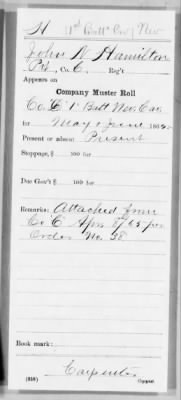 H 1st Batt'n Cav Nev
John N. Hamilton
Pvt, Co. C, Reg't
Appears on
Company Muster Roll
Co. "C" 1" Batt Nev. Cav.
for May & June 1865.
Present or absent: Present
Stoppage, $ 100 for
Due Gov't $ 100 for
Remarks: Attached from
Co E Apr 8/65 per
Order No. 38
Book mark:
Carpenter
(858) Copyist.